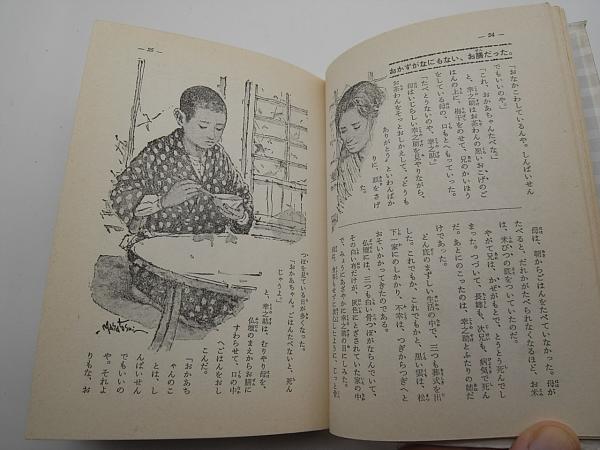 — 24 —
おかずがなにもない、お膳だった。
「おなかこわしているんや。しんぱいせん
でもいいのや。」
「これ、おかあちゃんたべな。」
と、幸之助はお茶わんの黒いおこげのご
はんの上に、梅干をのせて、兄のかいほう
をしている母の、口もとへもっていった。
「たべとうないのや、幸之助」
母はいじらしい幸之助を見やりながら、
お茶わんをそっとおしかえして、「どうも
ありがとう」といわんばか
りに、頭をさげ
母は、朝からごはんをたべていなかった。母が
たべると、だれかがたべられなくなるほど、お米
は、米びつの底をついていたのだ。
やがて兄は、かぜがもとで、とうとう死んでし
まった。つづいて、長姉も、次兄も、病気で死ん
だ。あとにのこったのは、幸之助とふたりの姉だ
けであった。
どん底のまずしい生活の中で、三つも葬式を出
した。これでもか、これでもかと、黒い雲は、松
下一家にのしかかり、不幸は、つぎからつぎへと
おそいかかってきたのである。
仏壇には、三つも白い骨つぼがならんでいて、
その白い布だけが、灰色にとざされていた家の中
で、みょうにあざやかに幸之助の目にしみた。
— 25 —
つぼを見ている日が多くなった。
「おかあちゃん。ごはんたべないと、死ん
じゃうよ。」
と、幸之助は、むりやり母を、
仏壇のまえからお膳に
すわらせて、口の中
へごはんをおし
こんだ。
「おかあち
ゃんのこ
とは、し
んぱいせん
でもいいの
や。それよ
りもな、お